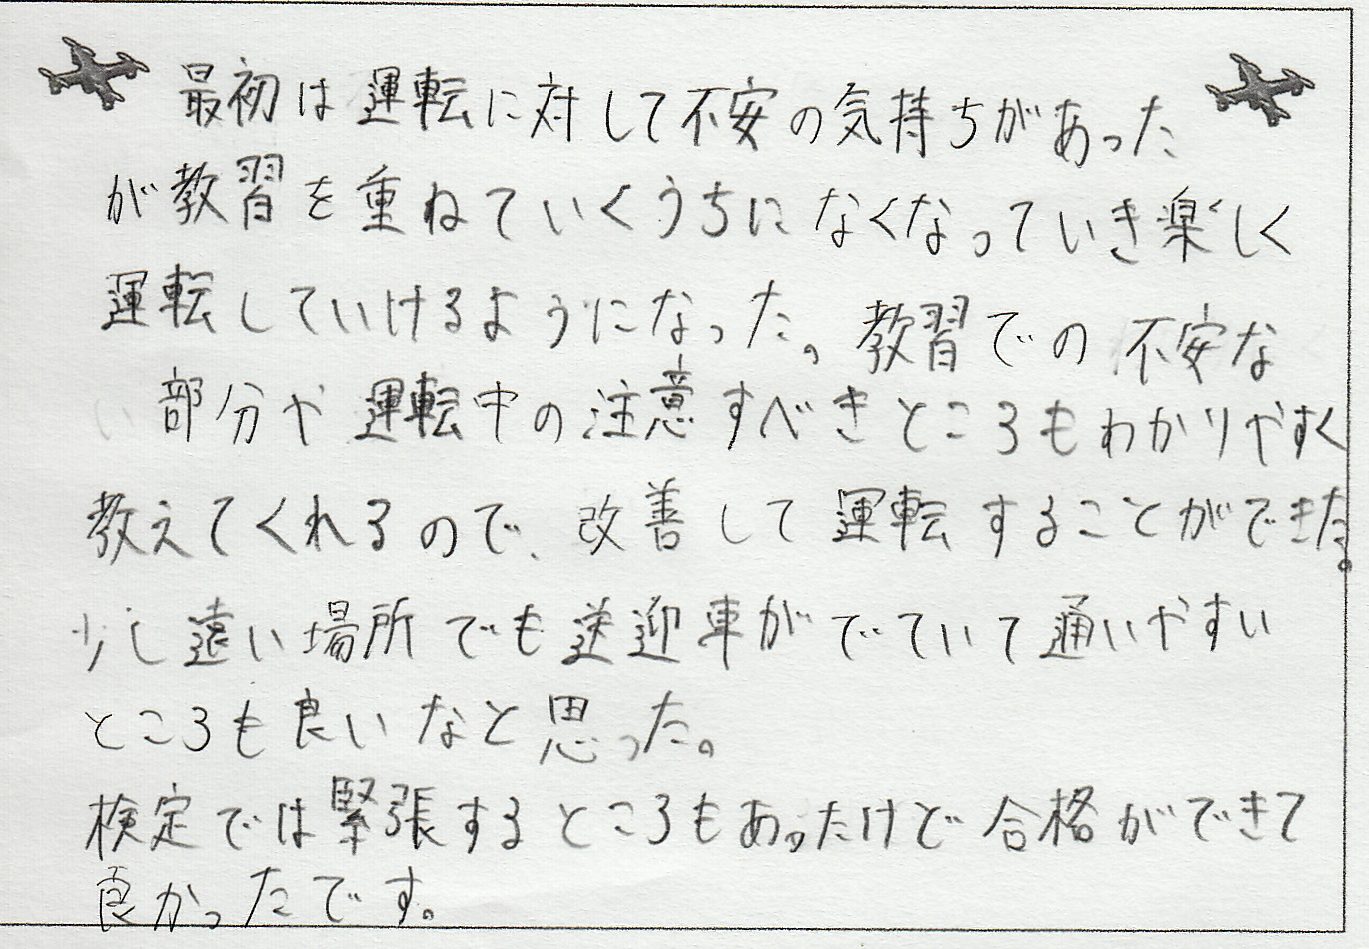 最初は運転に対して不安の気持ちがあった
が教習を重ねていくうちになくなっていき楽しく
運転していけるようになった。教習での不安な
部分や運転中の注意すべきところもわかりやすく
教えてくれるので、改善して運転することができた。
少し遠い場所でも送迎車がでていて通いやすい
ところも良いなと思った。
検定では緊張するところもあったけど合格ができて
良かったです。